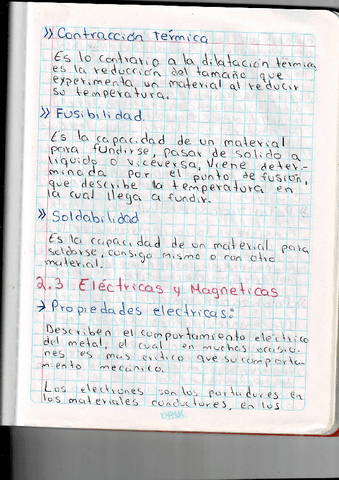 » Contracción térmica
Es lo contrario a la dilatación térmica,
es la reducción del tamaño que
experimenta un material al reducir
su temperatura.
» Fusibilidad
Es la capacidad de un material
para fundirse, pasar de solido a
liquido o viceversa, Viene deter-
minada por el punto de fusión,
que describe la temperatura en
la cual llega a fundir.
» Soldabilidad
Es la capacidad de un material para
soldarse, consigo mismo o con otro
material.
2.3 Eléctricas y Magneticas
→ Propiedades electricas:
Describen el comportamiento electrico
del metal, el cual en muchas ocasio-
nes es mas critico que su comporta-
miento mecánico.
Los electrones son los portadores en
los materiales conductores, en los